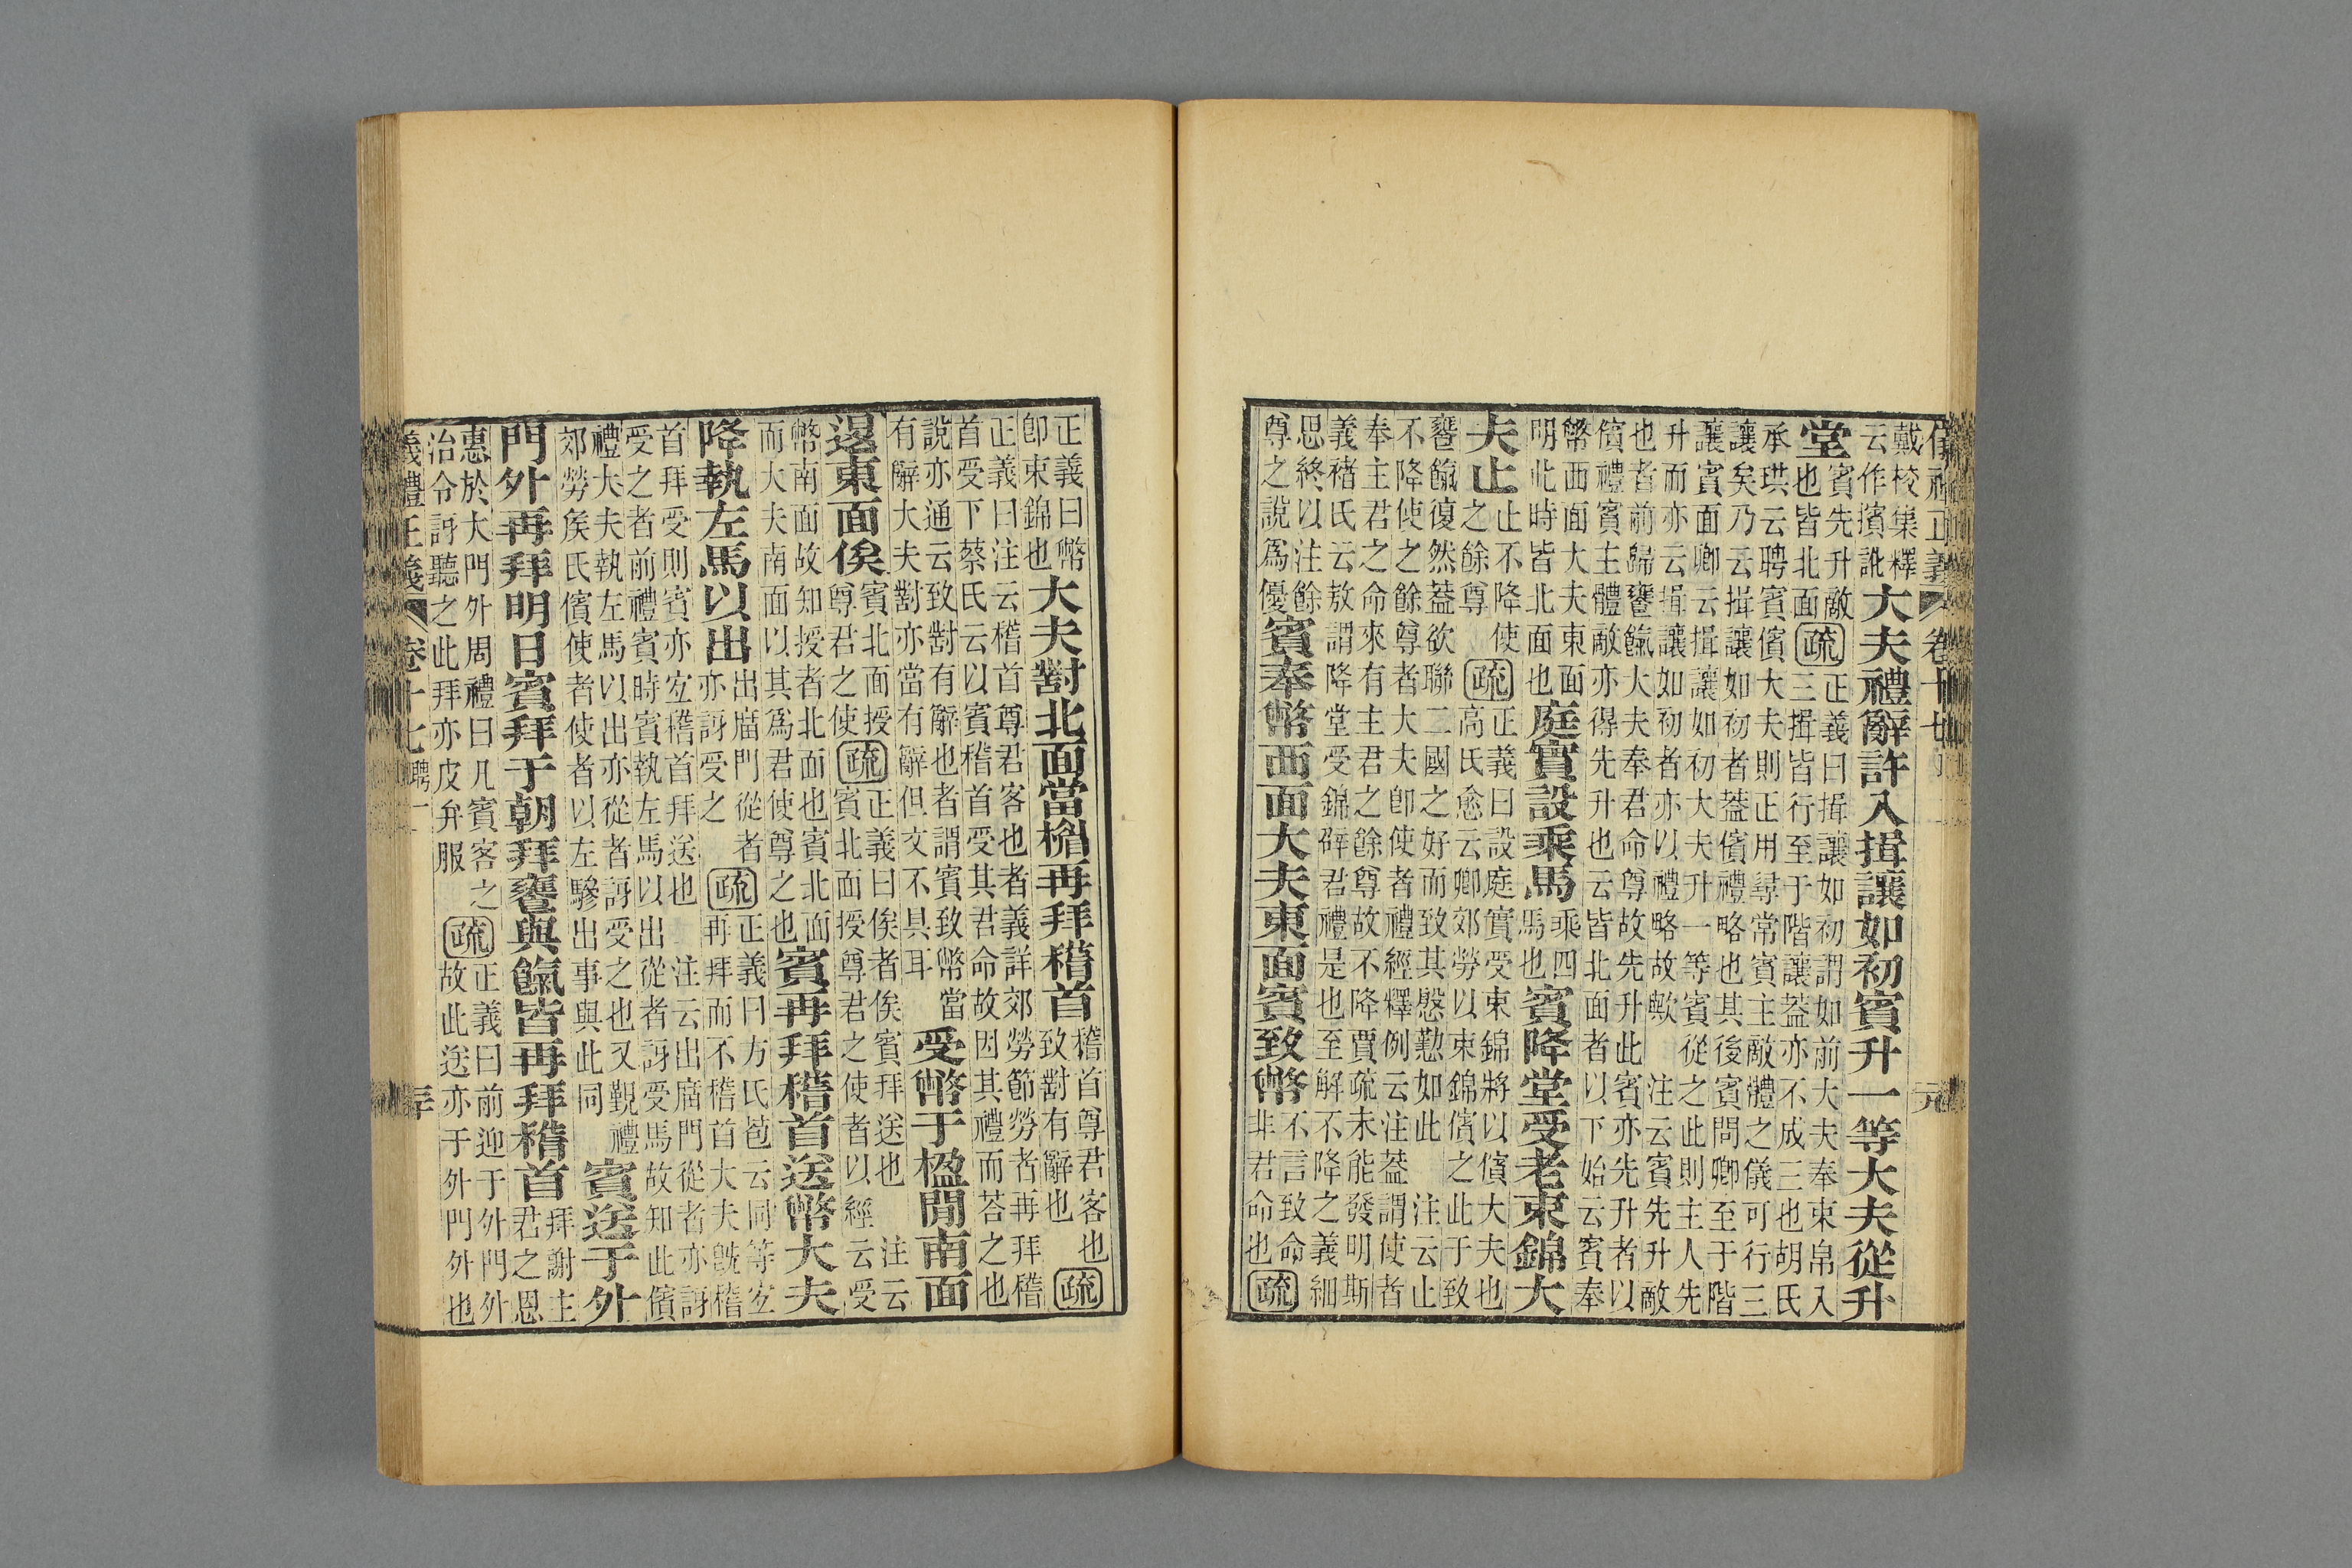 儀禮正義 卷十七
戴校集釋
云作擯訛
大夫禮辭許入揖讓如初賓升一等大夫從升
堂
賓先升敵
也皆北面
疏
正義曰揖讓如初謂如前大夫奉束帛入
三揖皆行至于階讓葢亦不成三也胡氏
承珙云聘賓儐大夫則正用尋常賓主敵體之儀可行三
讓矣乃云揖讓如初者葢儐禮略也其後賓問卿至于階
讓賓面卿云揖讓如初大夫升一等賓從之此則主人先
升而亦云揖讓如初者亦以禮略故歟　注云賓先升敵
也者前歸饔餼大夫奉君命尊故先升此賓亦先升者以
儐禮賓主體敵亦得先升也云皆北面者以下始云賓奉
幣西面大夫東面
明此時皆北面也
庭實設乘馬
乘四
馬也
賓降堂受老束錦大
夫止
止不降使
之餘尊
疏
正義曰設庭實受束錦將以儐大夫也
高氏愈云卿郊勞以束錦儐之此于致
饔餼復然葢欲聯二國之好而致其慇懃如此　注云止
不降使之餘尊者大夫卽使者禮經釋例云注葢謂使者
奉主君之命來有主君之餘尊故不降賈疏未能發明斯
義褚氏云敖謂降堂受錦辟君禮是也至解不降之義細
思終以注餘
尊之說爲優
賓奉幣西面大夫東面賓致幣
不言致命
非君命也
疏
正義曰幣
卽束錦也
大夫對北面當楣再拜稽首
稽首尊君客也
致對有辭也
疏
正義曰注云稽首尊君客也者義詳郊勞節勞者再拜稽
首受下蔡氏云以賓稽首受其君命故因其禮而荅之也
說亦通云致對有辭也者謂賓致幣當
有辭大夫對亦當有辭但文不具耳
受幣于楹閒南面
退東面俟
賓北面授
尊君之使
疏
正義曰俟者俟賓拜送也　注云
賓北面授尊君之使者以經云受
幣南面故知授者北面也賓北面
而大夫南面以其爲君使尊之也
賓再拜稽首送幣大夫
降執左馬以出
出廟門從者
亦訝受之
疏
正義曰方氏苞云同等宐
再拜而不稽首大夫旣稽
首拜受則賓亦宐稽首拜送也　注云出廟門從者亦訝
受之者前禮賓時賓執左馬以出從者訝受馬故知此儐
禮大夫執左馬以出亦從者訝受之也又覲禮
郊勞矦氏儐使者使者以左驂出事與此同
賓送于外
門外再拜明日賓拜于朝拜饔與餼皆再拜稽首
拜謝主
君之恩
惠於大門外周禮曰凡賓客之
治令訝聽之此拜亦皮弁服
疏
正義曰前迎于外門外
故此送亦于外門外也
義禮正義 卷十七 聘二